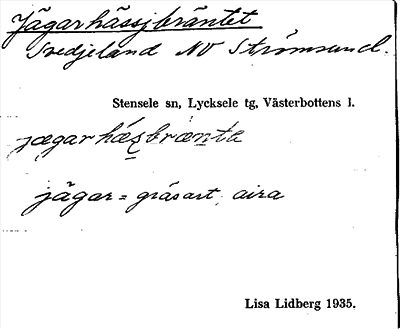 Jägarhässjbräntet
Svedjeland NV Strömsund.
Stensele sn, Lycksele tg, Västerbottens l.
jægarhæsbrænta
jägar = gräsart, aira
Lisa Lidberg 1935.